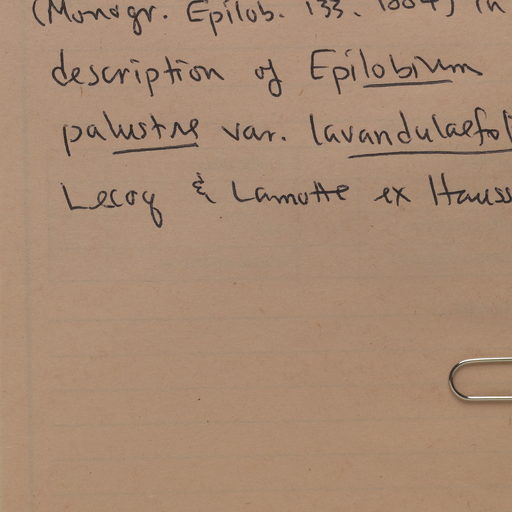 (Monogr. Epilob. 133. 1884) in
description of Epilobium
palustre var. lavandulaefol
Lecoq & Lamotte ex Hauss